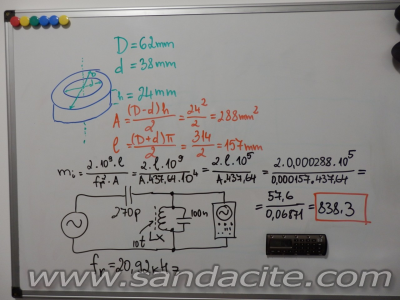 D=62mm
d=38mm
h=24mm
A=(D-d)h/2=24²/2=288mm²
l=(D+d)π/2=314/2=157mm
mᵢ=2.10⁹.l/fr².A=2.l.10⁹/A.437,64.10⁴=2.l.10⁵/A.437,64=2.0,000288.10⁵/0,000157.437,64=
=57,6/0,06871=838.3
270p
100n
10t
Lx
fr=20,92kHz
www.sandacite.com